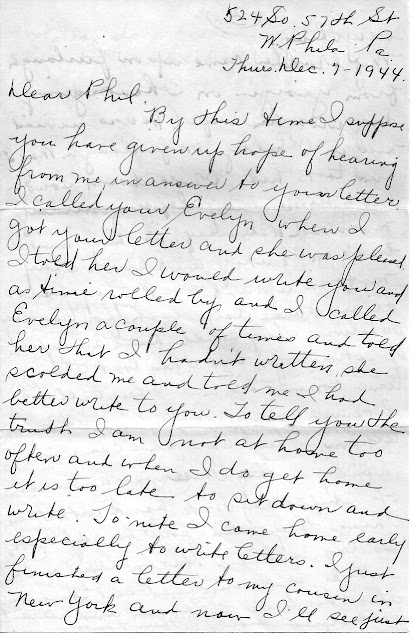 524 So. 57th St
W. Phila Pa
Thurs. Dec. 7-1944.
Dear Phil.
By this time I suppose
you have given up hope of hearing
from me in answer to your letter
I called your Evelyn when I
got your letter and she was pleased
I told her I would write you and
as time rolled by and I called
Evelyn a couple of times and told
her that I hadn't written she
scolded me and told me I had
better write to you. To tell you the
truth I am not at home too
often and when I do get home
it is too late to sit down and
write. To-nite I came home early
especially to write letters. I just
finished a letter to my cousin in
New York and now I'll see just